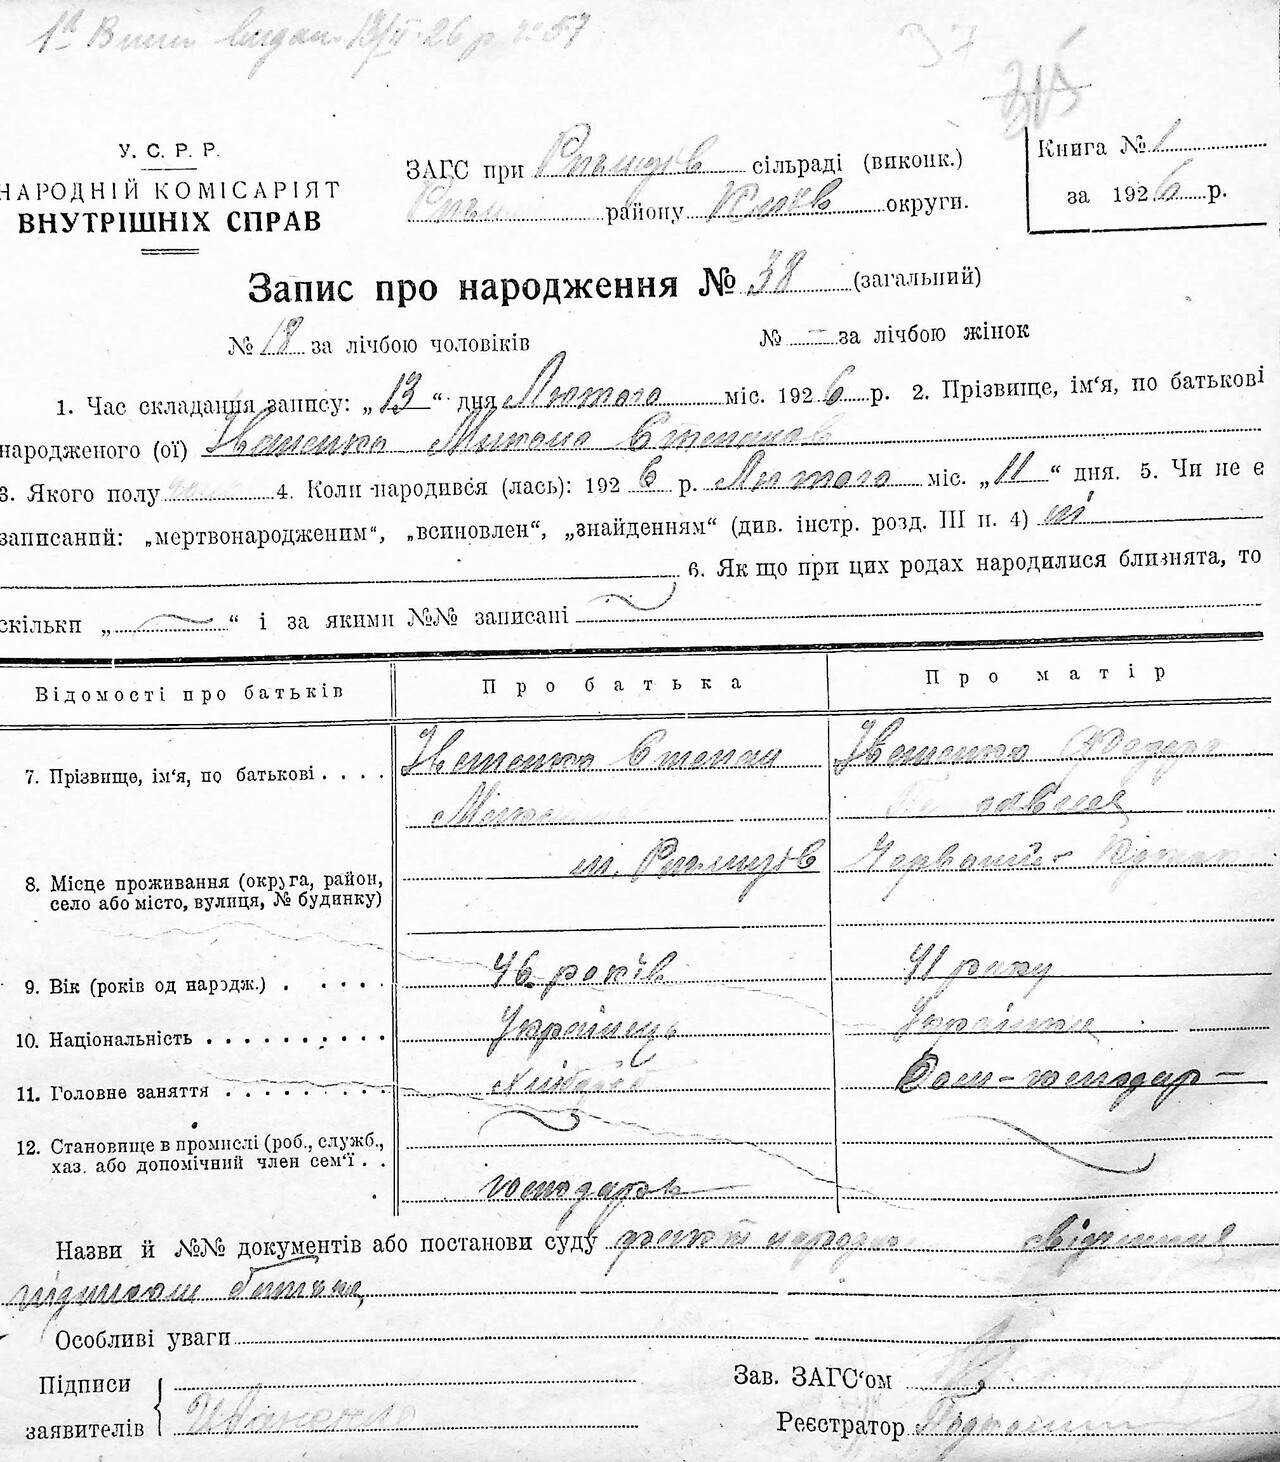 видан 13/II 26 р № 57
37
У. С. Р. Р.
НАРОДНІЙ КОМІСАРІЯТ
ВНУТРІШНІХ СПРАВ
ЗАГС при Ржищів сільраді (виконк.)
району Київ округи.
Книга № 1
за 1926 р.
Запис про народження № 38 (загальний)
№ 18 за лічбою чоловіків № — за лічбою жінок
1. Час складання запису: „13“ дня Лютого міс. 1926 р. 2. Прізвище, ім'я, по батькові
народженого (ої) Іваненко Микола Степанов
3. Якого полу 4. Коли народився (лась): 1926 р. Лютого міс. „11“ дня. 5. Чи не є
записаний: „мертвонародженим“, „всиновлен“, „знайденням“ (див. інстр. розд. III п. 4) ні
6. Як що при цих родах народилися близнята, то
скільки „ “ і за якими №№ записані
Відомості про батьків Про батька Про матір
7. Прізвище, ім'я, по батькові . . . . Іваненко Степан Іваненко Федора
8. Місце проживання (округа, район, село або місто, вулиця, № будинку) м. Ржищів Червоний-
9. Вік (років од народж.) . . . . . 46 років 41 року
10. Національність . . . . . . . . . . Українець Українка
11. Головне заняття . . . . . . . . . Хлібороб Дом-господар-
12. Становище в промислі (роб., служб., хаз. або допомічний член сем'ї . . . господарів
Назви й №№ документів або постанови суду факт народж свідчення
підписом батька,
Особливі уваги
Підписи
заявителів Иваненко
Зав. ЗАГС'ом
Реєстратор